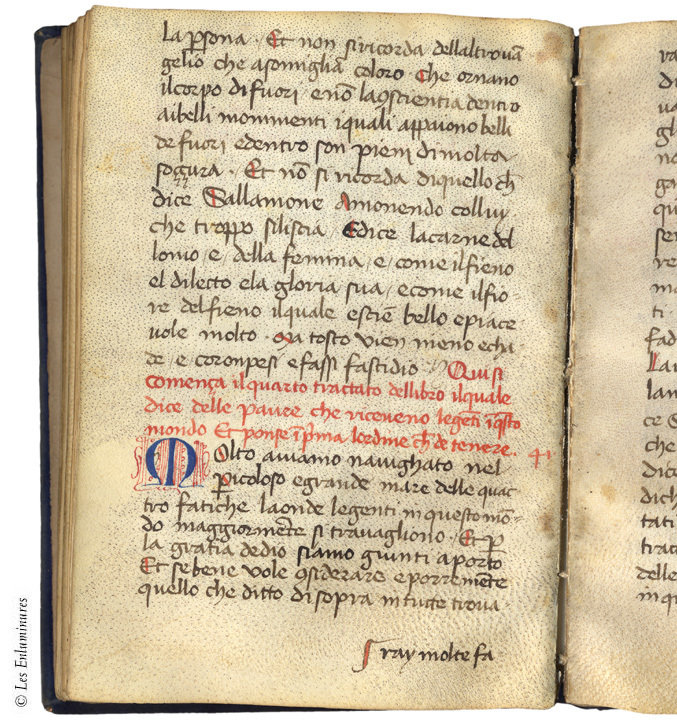 la p̄sona · Et non si ricorda dellaltrovā
gelio che asomiglia coloro che ornano
il corpo di fuori · e nō la ꝯscientia dentro
ai belli monimenti i quali appaiono belli
de fuori e dentro son pieni di molta
soꝫura · Et nō si ricorda di quello ch̄
dice Sallamone amonendo collui
che troppo si liscia · E dice la carne del
lomo / e / della femina / e / come il fieno
el dilecto e la gloria sua / e come il fio-
re del fieno il quale escie bello e piace-
vole molto · Ma tosto vien meno e chi-
de / e coronpesi e fassi fastidio · Qui si
comença il quarto tractato del libro il quale
dice delle pauee che riceveno le genti ī q̄sto
mondo Et ponse ī p̄ma lordine ch̄ de tenere ·
Molto aviamo navighato nel
p̄icoloso e grande mare delle quac-
tro fatiche la onde le genti in questo mō-
do maggiorm̄ete si travagliono · Et p̄
la gratia de dio siamo giunti a porto
Et se bene vole ꝯsiderare e porre m̄ete
quello che ditto di sopra in tutte trova
ray molte fa
ra
di
va
gl
na
ga
qu
ser
re
ma
ti ·
fad
Lan
lan
ce S
che
dice
dich
tati
trac
delle
in q
© Les Enluminures